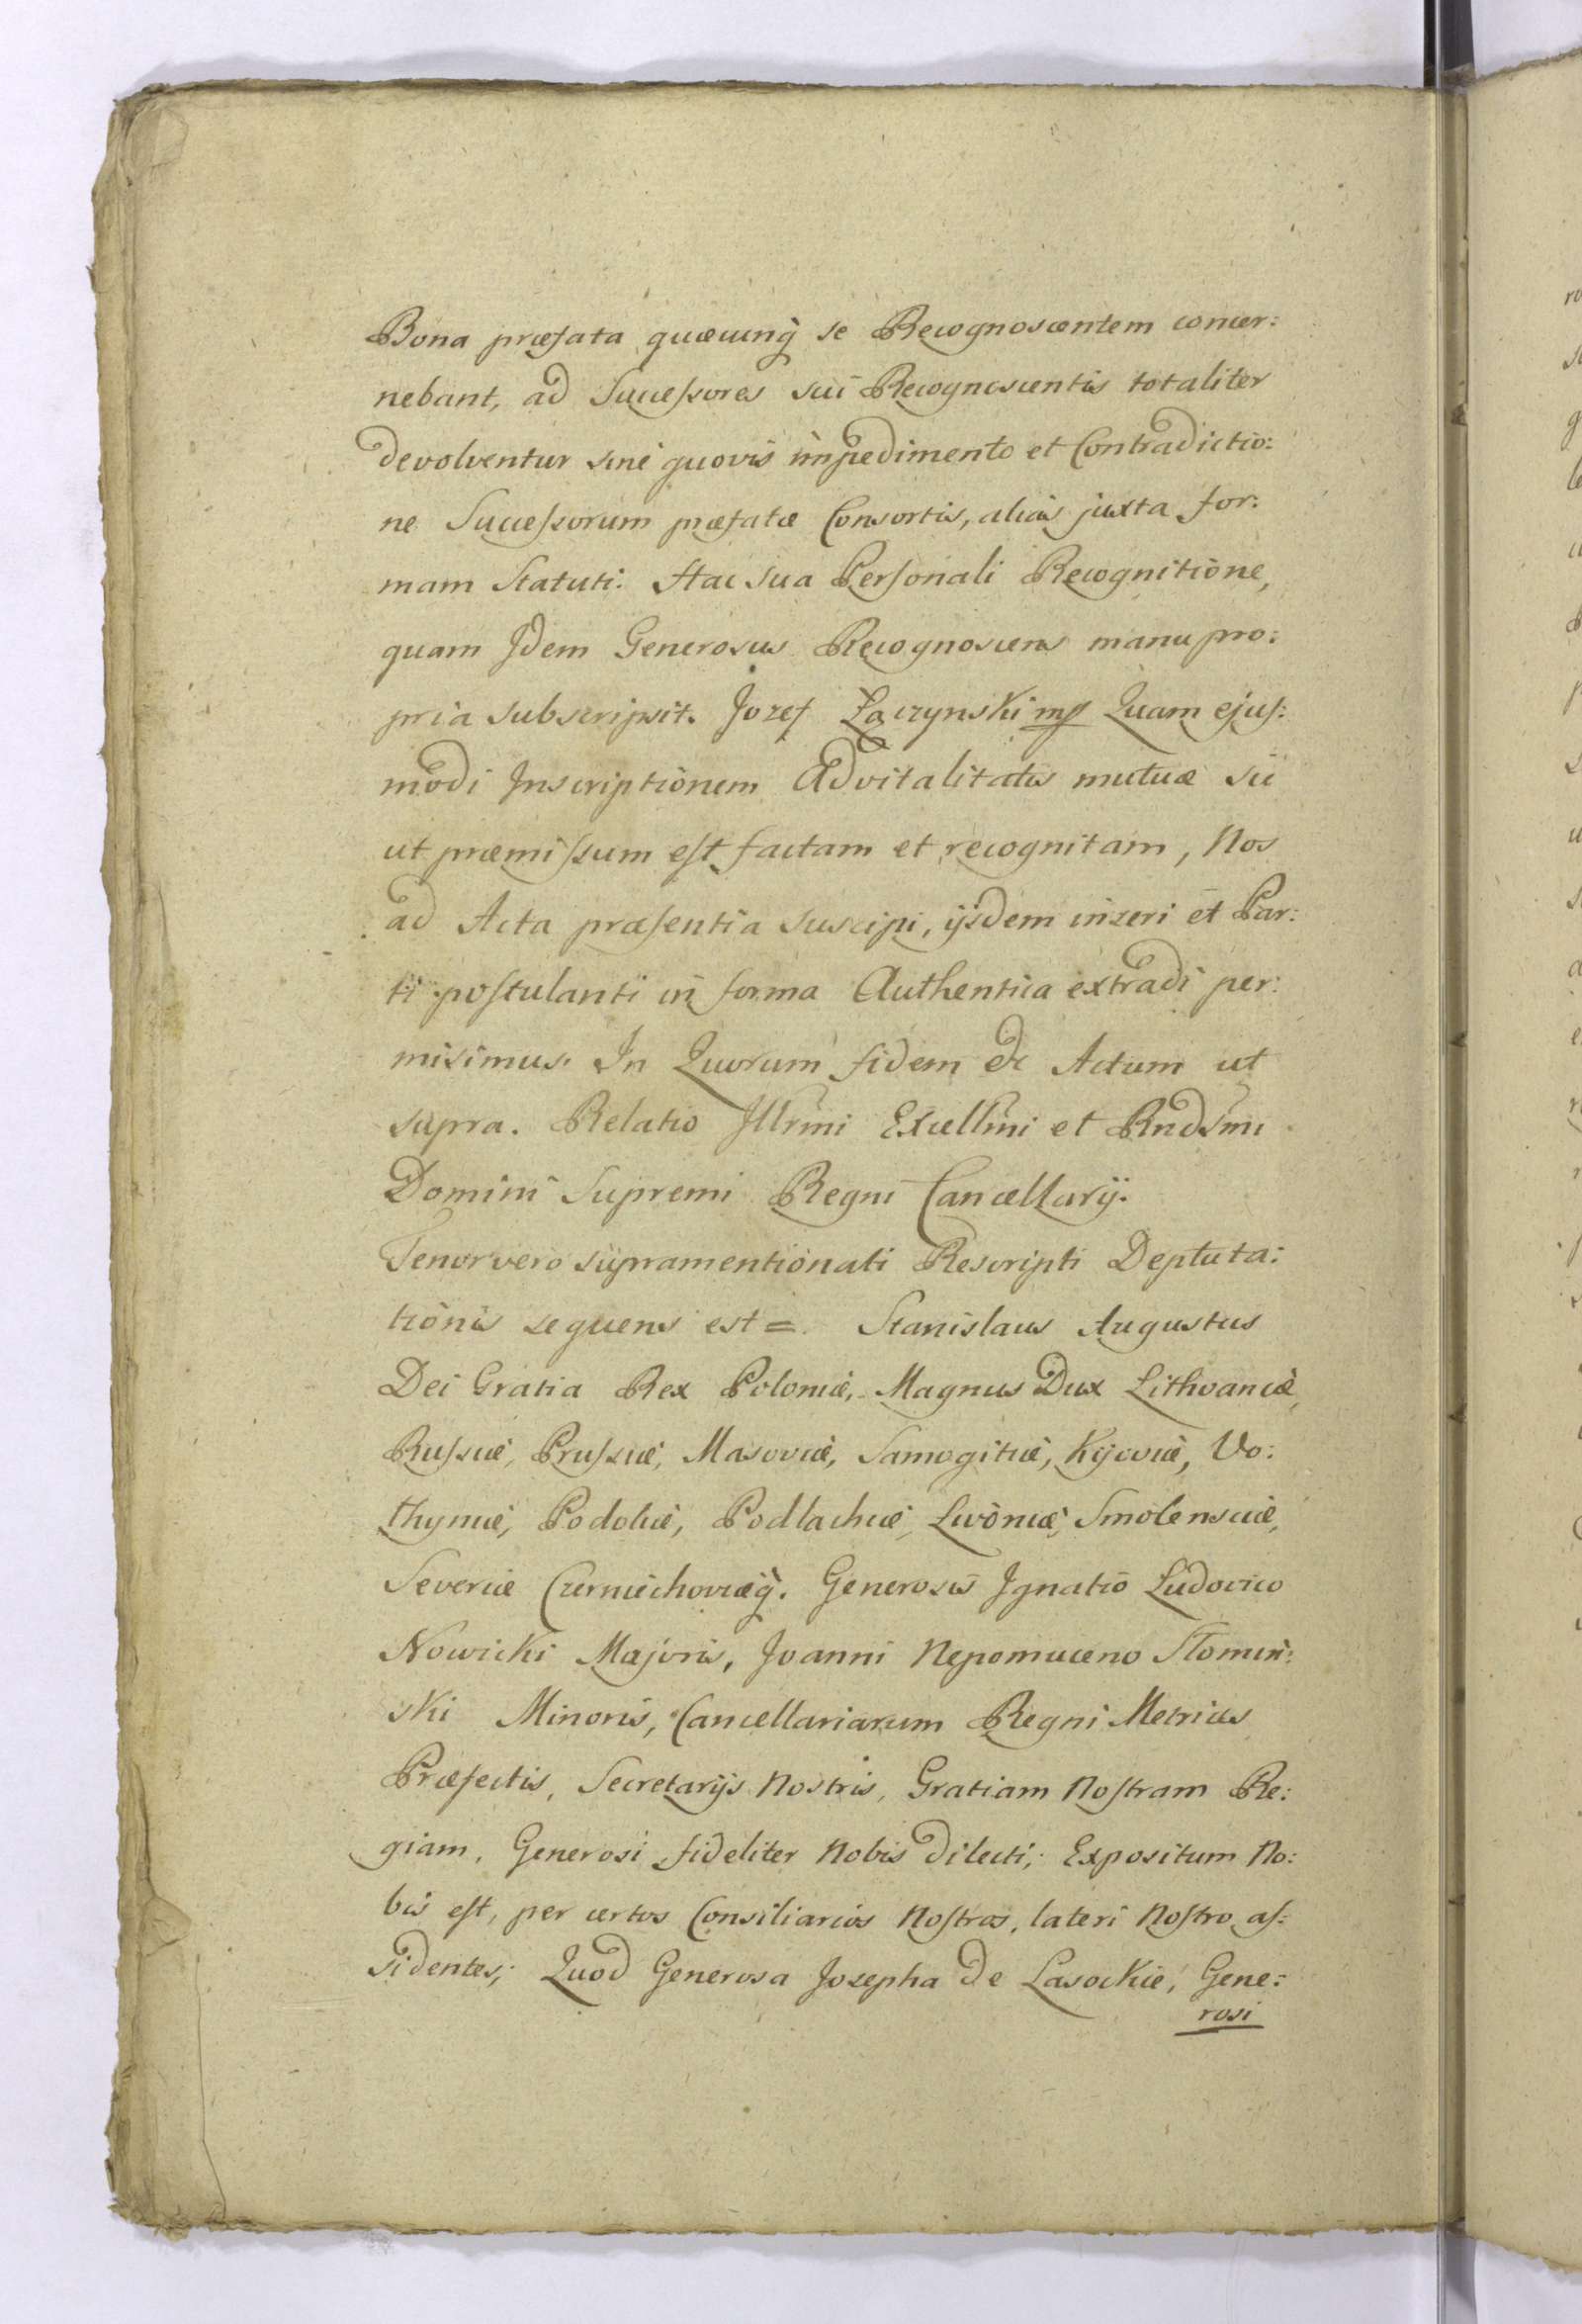 Bona præfata quæcunq̀ se Recognoscentem concer:
nebant, ad Succeſsores sui Recognoscentis totaliter
devolventur sine quovis impedimento et Contradictio:
ne Succeſsorum præfatæ Consortis, alias juxta for:
mam Statuti. Hac sua Perſonali Recognitione,
quam Idem Generosus Recognoscens manu pro:
pria subscripsit. Jozef Łączynski mp Quam ejuſ:
modi Inscriptionem Advitalitatis mutuæ sic
ut præmiſsum eſt factam et recognitam, Nos
ad Acta præſentia suscipi, ijsdem inseri et Par:
ti poſtulanti in forma Authentica extradi per:
misimus. In Quorum fidem &c Actum ut
supra. Relatio Illrmi Excellmi et Rndsmi
Domini Supremi Regni Cancellarij.
Tenor vero supramentionati Rescripti Deputa:
tionis sequens est = Stanislaus Augustus
Dei Gratia Rex Poloniæ, Magnus Dux Lithvaniæ,
Ruſsiæ, Pruſsiæ, Masoviæ, Samogitiæ, Kijoviæ, Vo:
lhyniæ, Podoliæ, Podlachiæ, Livoniæ, Smolensciæ,
Severiæ Czerniechoviæq̀. Generosis Ignatio Ludovico
Nowicki Majoris, Joanni Nepomuceno Słomiń:
ski Minoris, Cancellariarum Regni Metrices
Præfectis, Secretarijs Nostris, Gratiam Noſtram Re:
giam. Generosi fideliter Nobis dilecti; Expositum No:
bis eſt, per certos Consiliarios Noſtros, lateri Noſtro aſ:
sidentes; Quod Generosa Josepha de Lasockie, Gene:
rosi